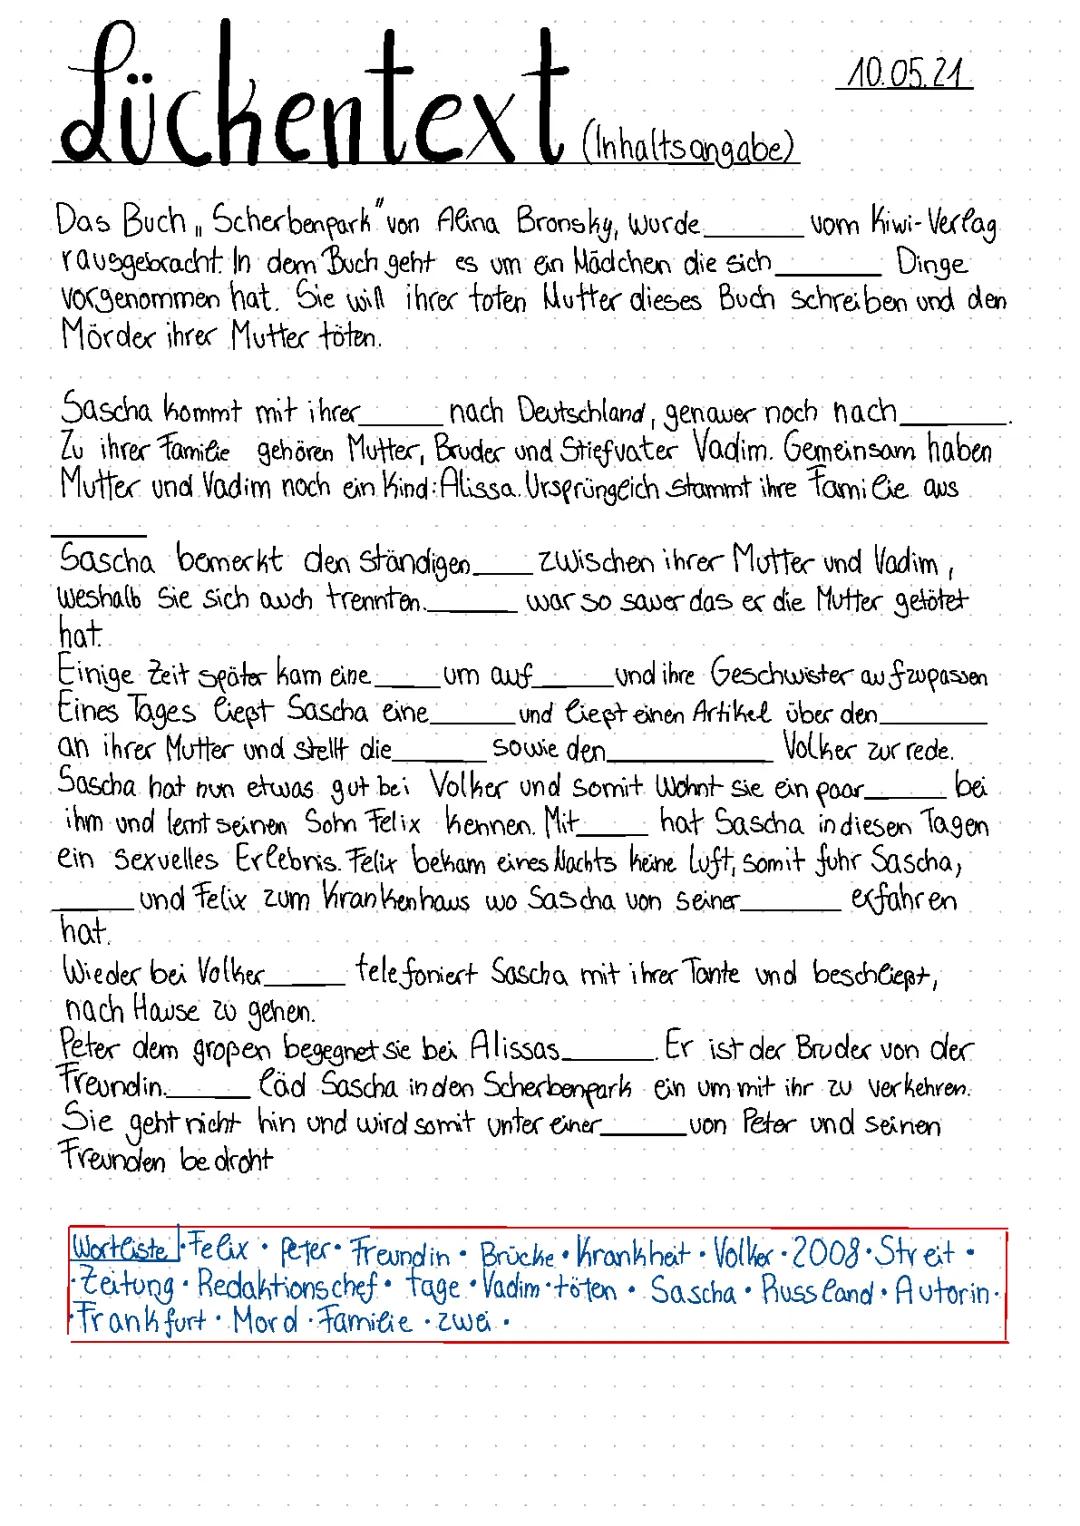 Lückentext (Inhaltsangabe) 10.05.21
Das Buch „Scherbenpark" von Alina Bronsky, wurde ______ vom Kiwi-Verlag
rausgebracht. In dem Buch geht es um ein Mädchen die sich ______ Dinge
vorgenommen hat. Sie will ihrer toten Mutter dieses Buch schreiben und den
Mörder ihrer Mutter töten.
Sascha kommt mit ihrer ______ nach Deutschland, genauer noch nach ______.
Zu ihrer Familie gehören Mutter, Bruder und Stiefvater Vadim. Gemeinsam haben
Mutter und Vadim noch ein Kind: Alissa. Ursprünglich stammt ihre Familie aus
______
Sascha bemerkt den ständigen ______ zwischen ihrer Mutter und Vadim,
weshalb sie sich auch trennten. ______ war so sauer das er die Mutter getötet
hat.
Einige Zeit später kam eine ______ um auf ______ und ihre Geschwister aufzupassen
Eines Tages ließt Sascha eine ______ und ließt einen Artikel über den ______
an ihrer Mutter und stellt die ______ sowie den ______ Volker zur rede.
Sascha hat nun etwas gut bei Volker und somit wohnt sie ein paar ______ bei
ihm und lernt seinen Sohn Felix kennen. Mit ______ hat Sascha in diesen Tagen
ein sexuelles Erlebnis. Felix bekam eines Nachts keine Luft, somit fuhr Sascha,
______ und Felix zum Krankenhaus wo Sascha von seiner ______ erfahren
hat.
Wieder bei Volker ______ telefoniert Sascha mit ihrer Tante und beschließt,
nach Hause zu gehen.
Peter dem großen begegnet sie bei Alissas ______. Er ist der Bruder von der
Freundin. ______ läd Sascha in den Scherbenpark ein um mit ihr zu verkehren.
Sie geht nicht hin und wird somit unter einer ______ von Peter und seinen
Freunden bedroht
Wortliste • Felix • Peter • Freundin • Brücke • Krankheit • Volker • 2008 • Streit •
• Zeitung • Redaktionschef • Tage • Vadim • töten • Sascha • Russland • Autorin •
• Frankfurt • Mord • Familie • zwei •